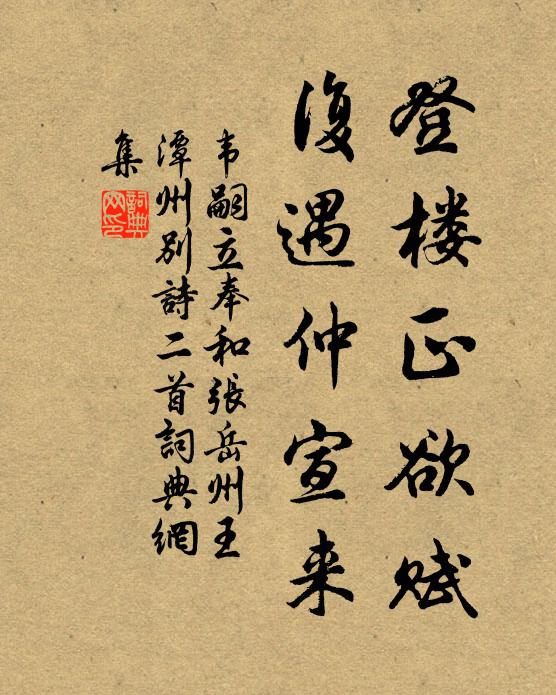 登楼正欲赋
復遇仲宣来
韦嗣立奉和張岳州王
潭州别詩二首詞典網
集
詞典
网印